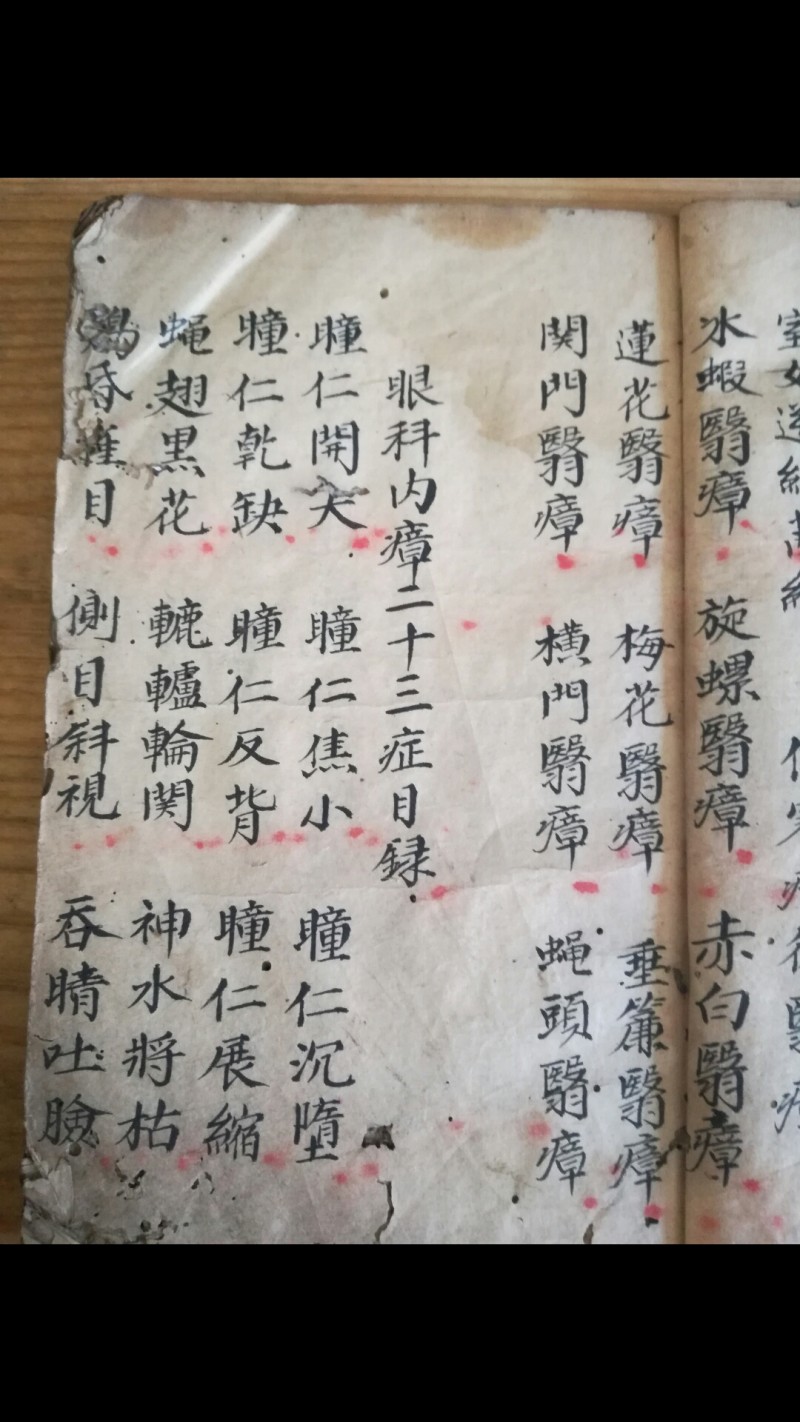 冰蝦翳瘴 旋螺翳瘴 赤白翳瘴
蓮花翳瘴 梅花翳瘴 垂簾翳瘴
関門翳瘴 横門翳瘴 蝇頭翳瘴
眼科内瘴二十三症目録
瞳仁開大 瞳仁焦小 瞳仁沉墮
瞳仁乾缺 瞳仁反背 瞳仁展縮
蝇翅黑花 轆轤輪関 神水將枯
昏 目 側目斜視 吞睛吐臉